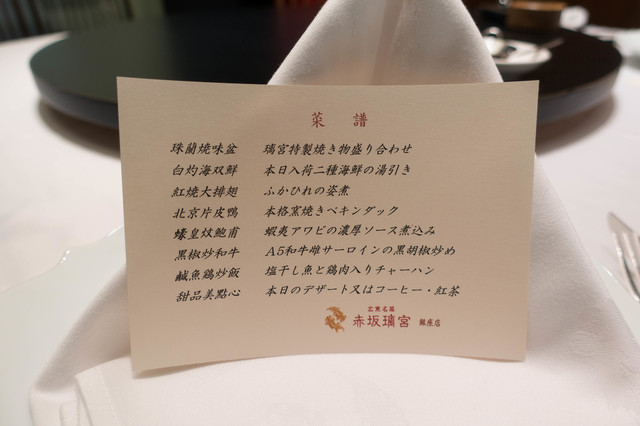 菜 譜
珠蘭燒味盆 璃宮特製焼き物盛り合わせ
白灼海双鮮 本日入荷二種海鮮の湯引き
紅燒大排翅 ふかひれの姿煮
北京片皮鴨 本格窯焼きペキンダック
蠔皇炆鮑甫 蝦夷アワビの濃厚ソース煮込み
黒椒炒和牛 A5和牛雌サーロインの黒胡椒炒め
鹹魚鶏炒飯 塩干し魚と鶏肉入りチャーハン
甜品美點心 本日のデザート又はコーヒー・紅茶
広東名菜
赤坂璃宮 銀座店